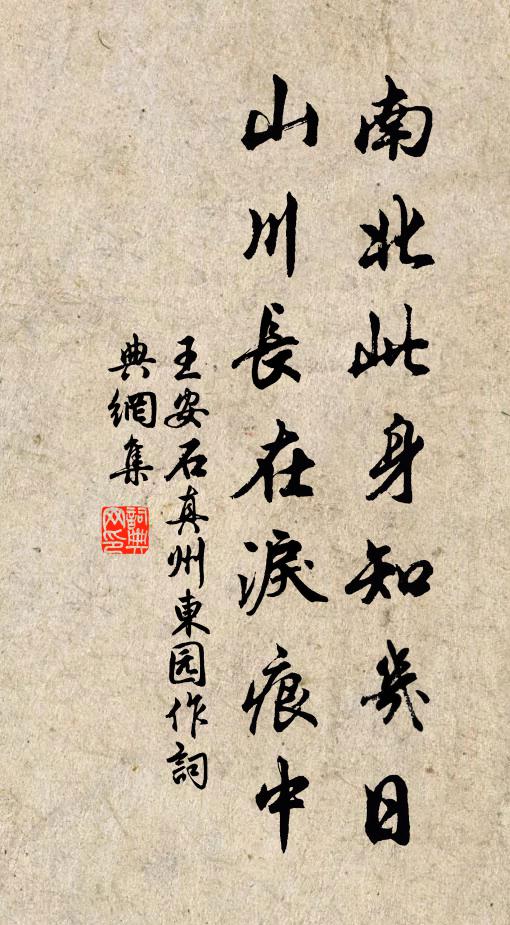 南北此身知幾日
山川長在淚痕中
王安石真州東园作詞
典網集
詞典网印